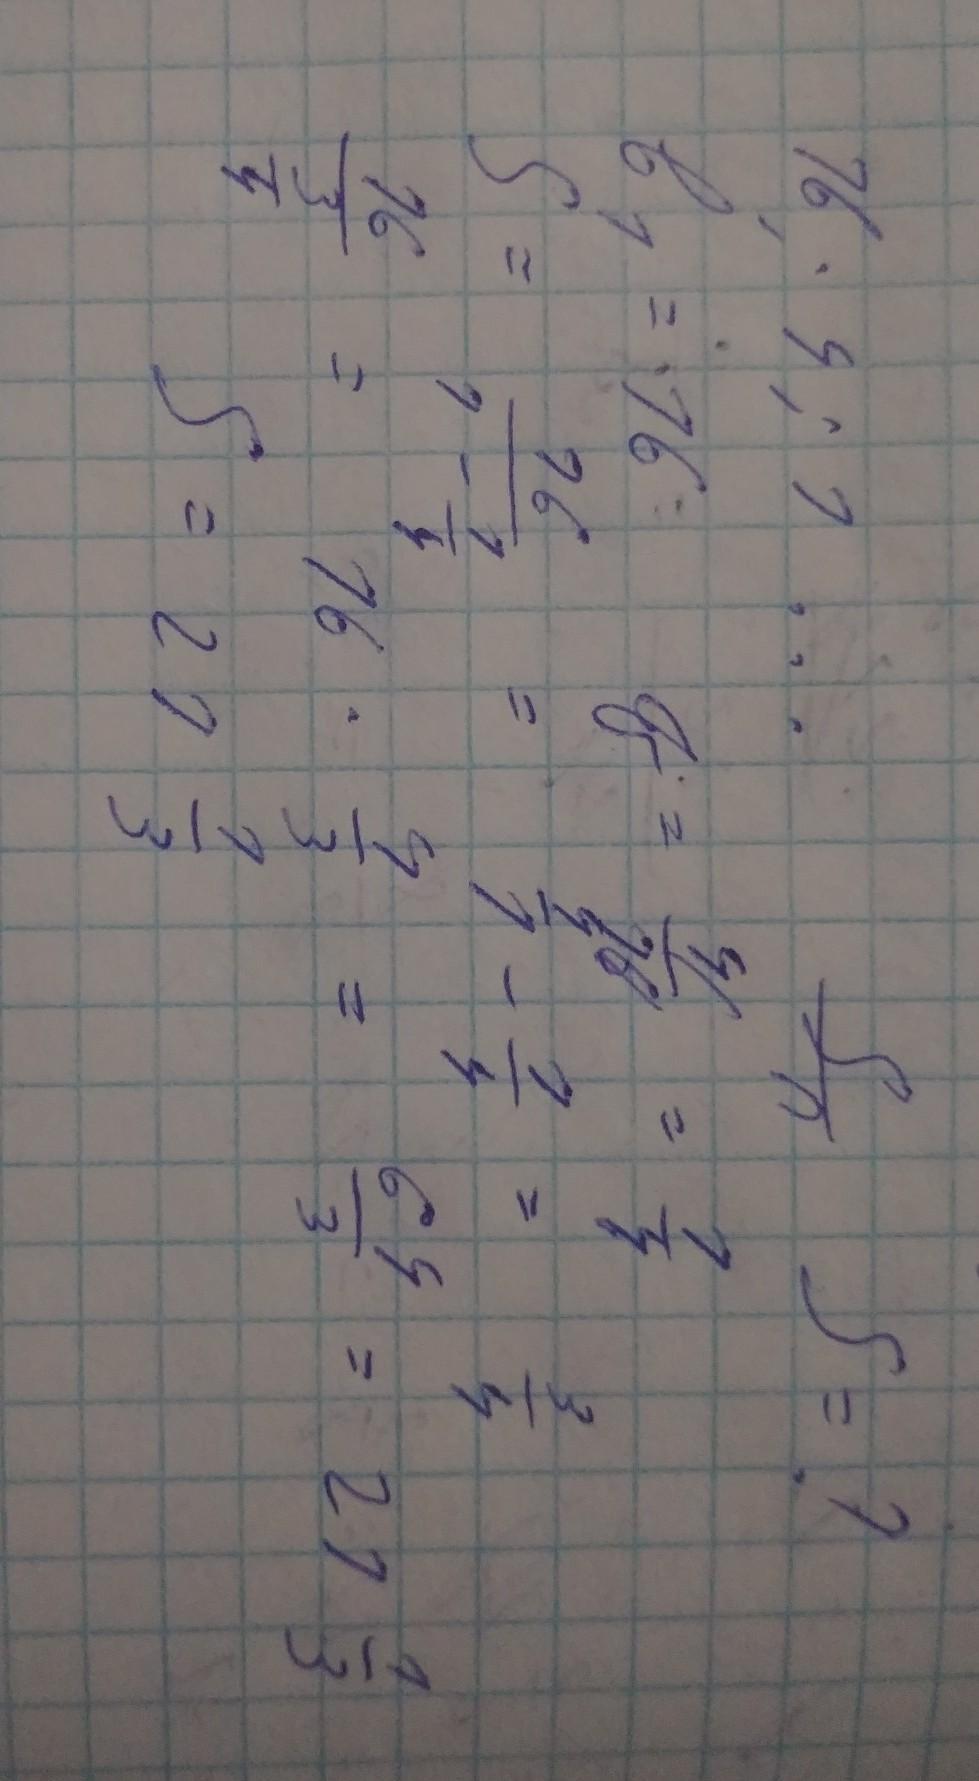 16; 4; 1 ... S/n S = ?
b₁ = 16; q = 4/16 = 1/4
S = 16/(1 - 1/4) = 1 - 1/4 = 3/4
16/(3/4) = 16 · 4/3 = 64/3 = 21 1/3
S = 21 1/3